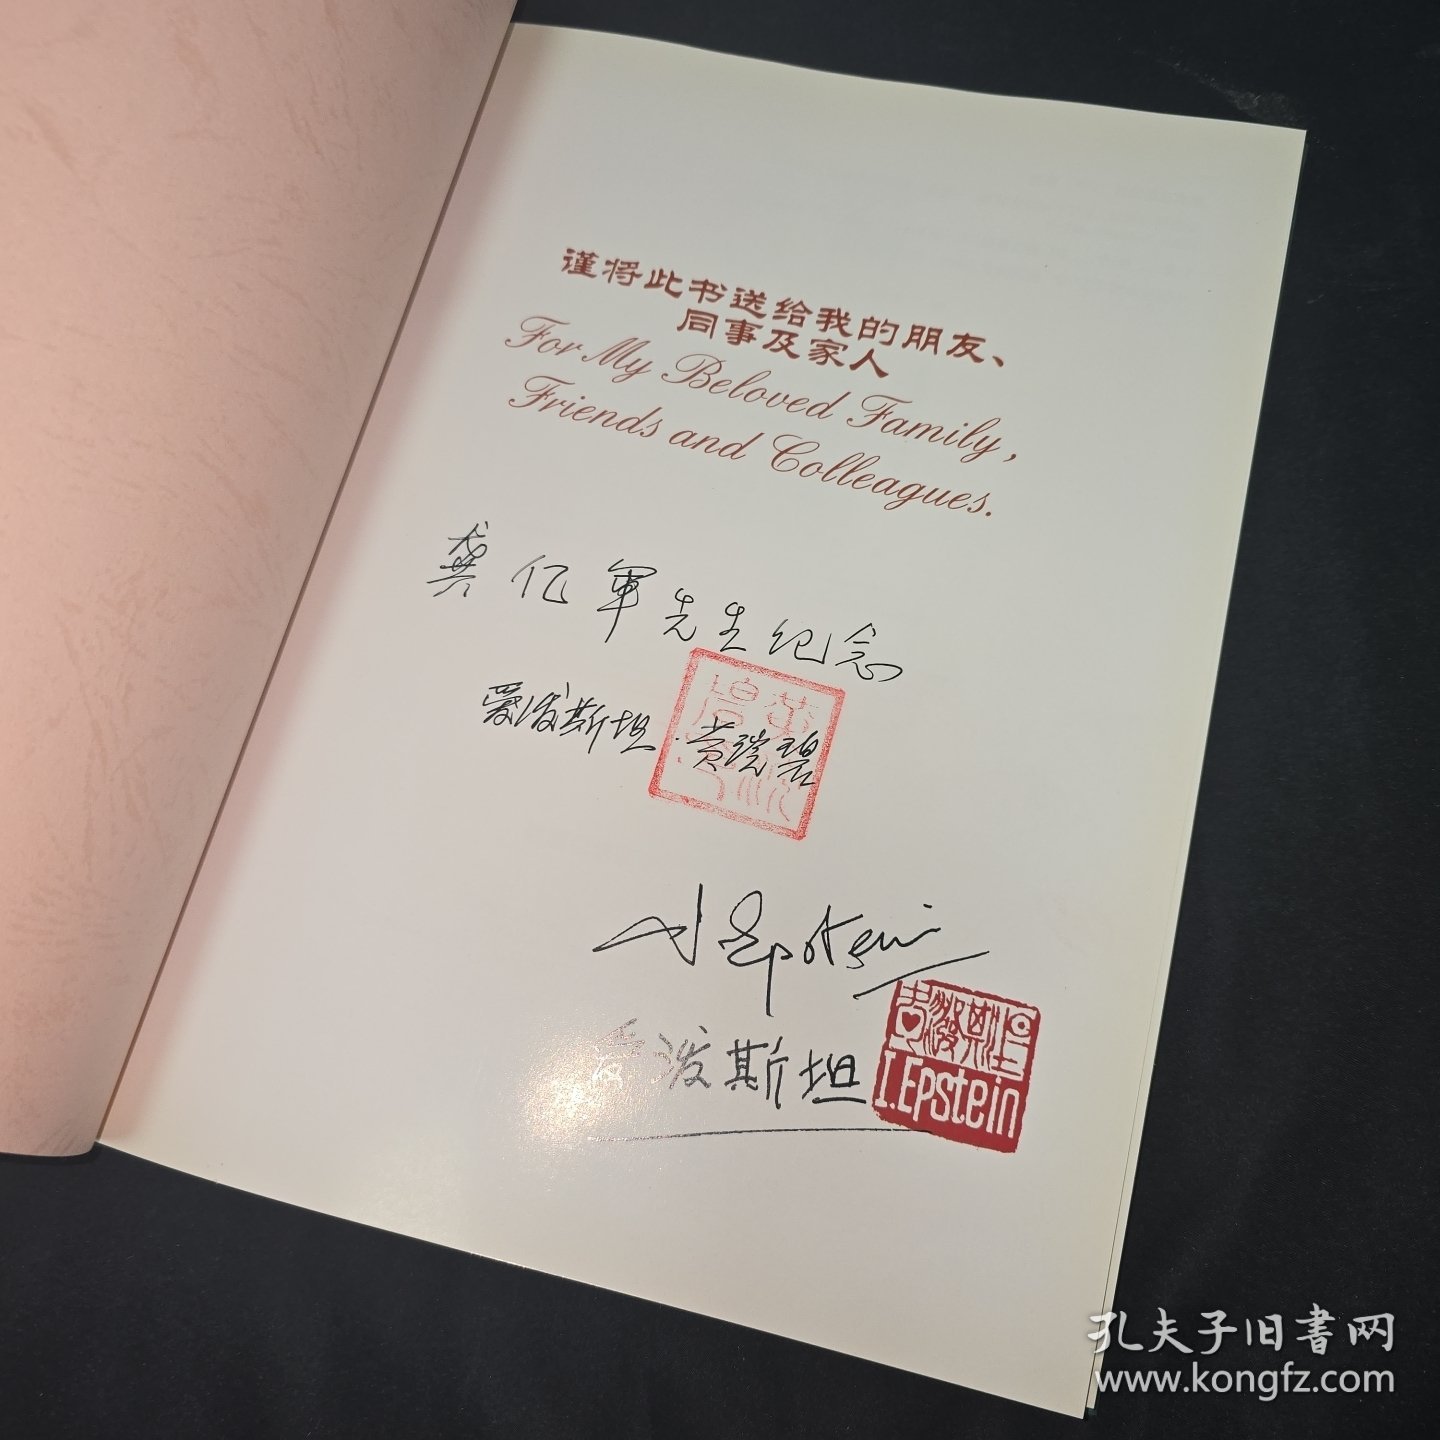 谨将此书送给我的朋友、
同事及家人
For My Beloved Family,
Friends and Colleagues.
龚亿军先生纪念
爱泼斯坦·黄浣碧
I. Epstein
爱泼斯坦
爱泼斯坦
I.Epstein
孔夫子旧书网
www.kongfz.com